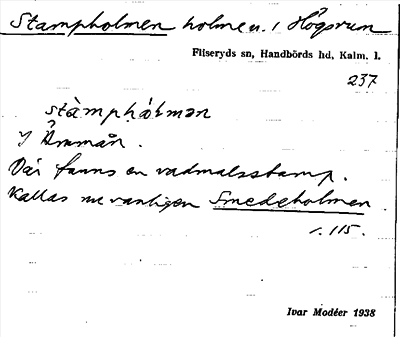 Stampholmen holme n. i Högsrum
Fliseryds sn, Handbörds hd, Kalm. l.
237
stàmphålman
I Åmmån.
Där fanns en vadmalsstamp.
Kallas nu vanligen Smedeholmen
s. 115.
Ivar Modéer 1938